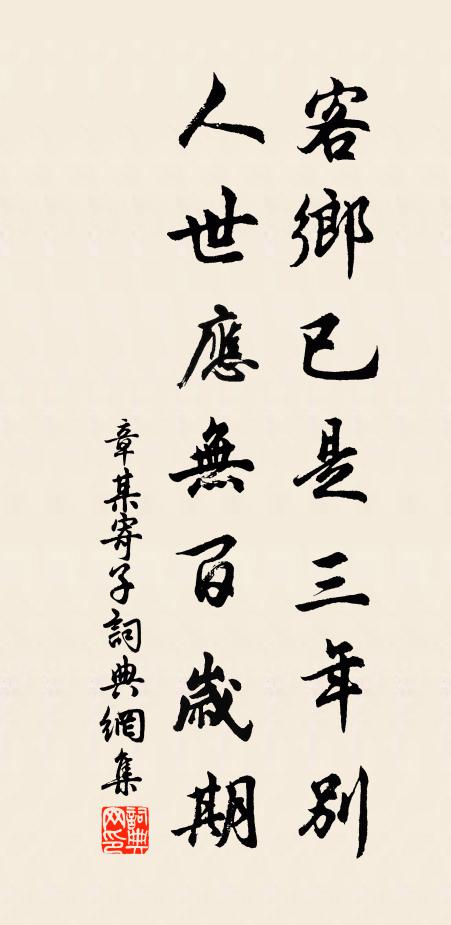 客鄉已是三年別
人世應無百歲期
章某寄子詞典網集
詞典網印